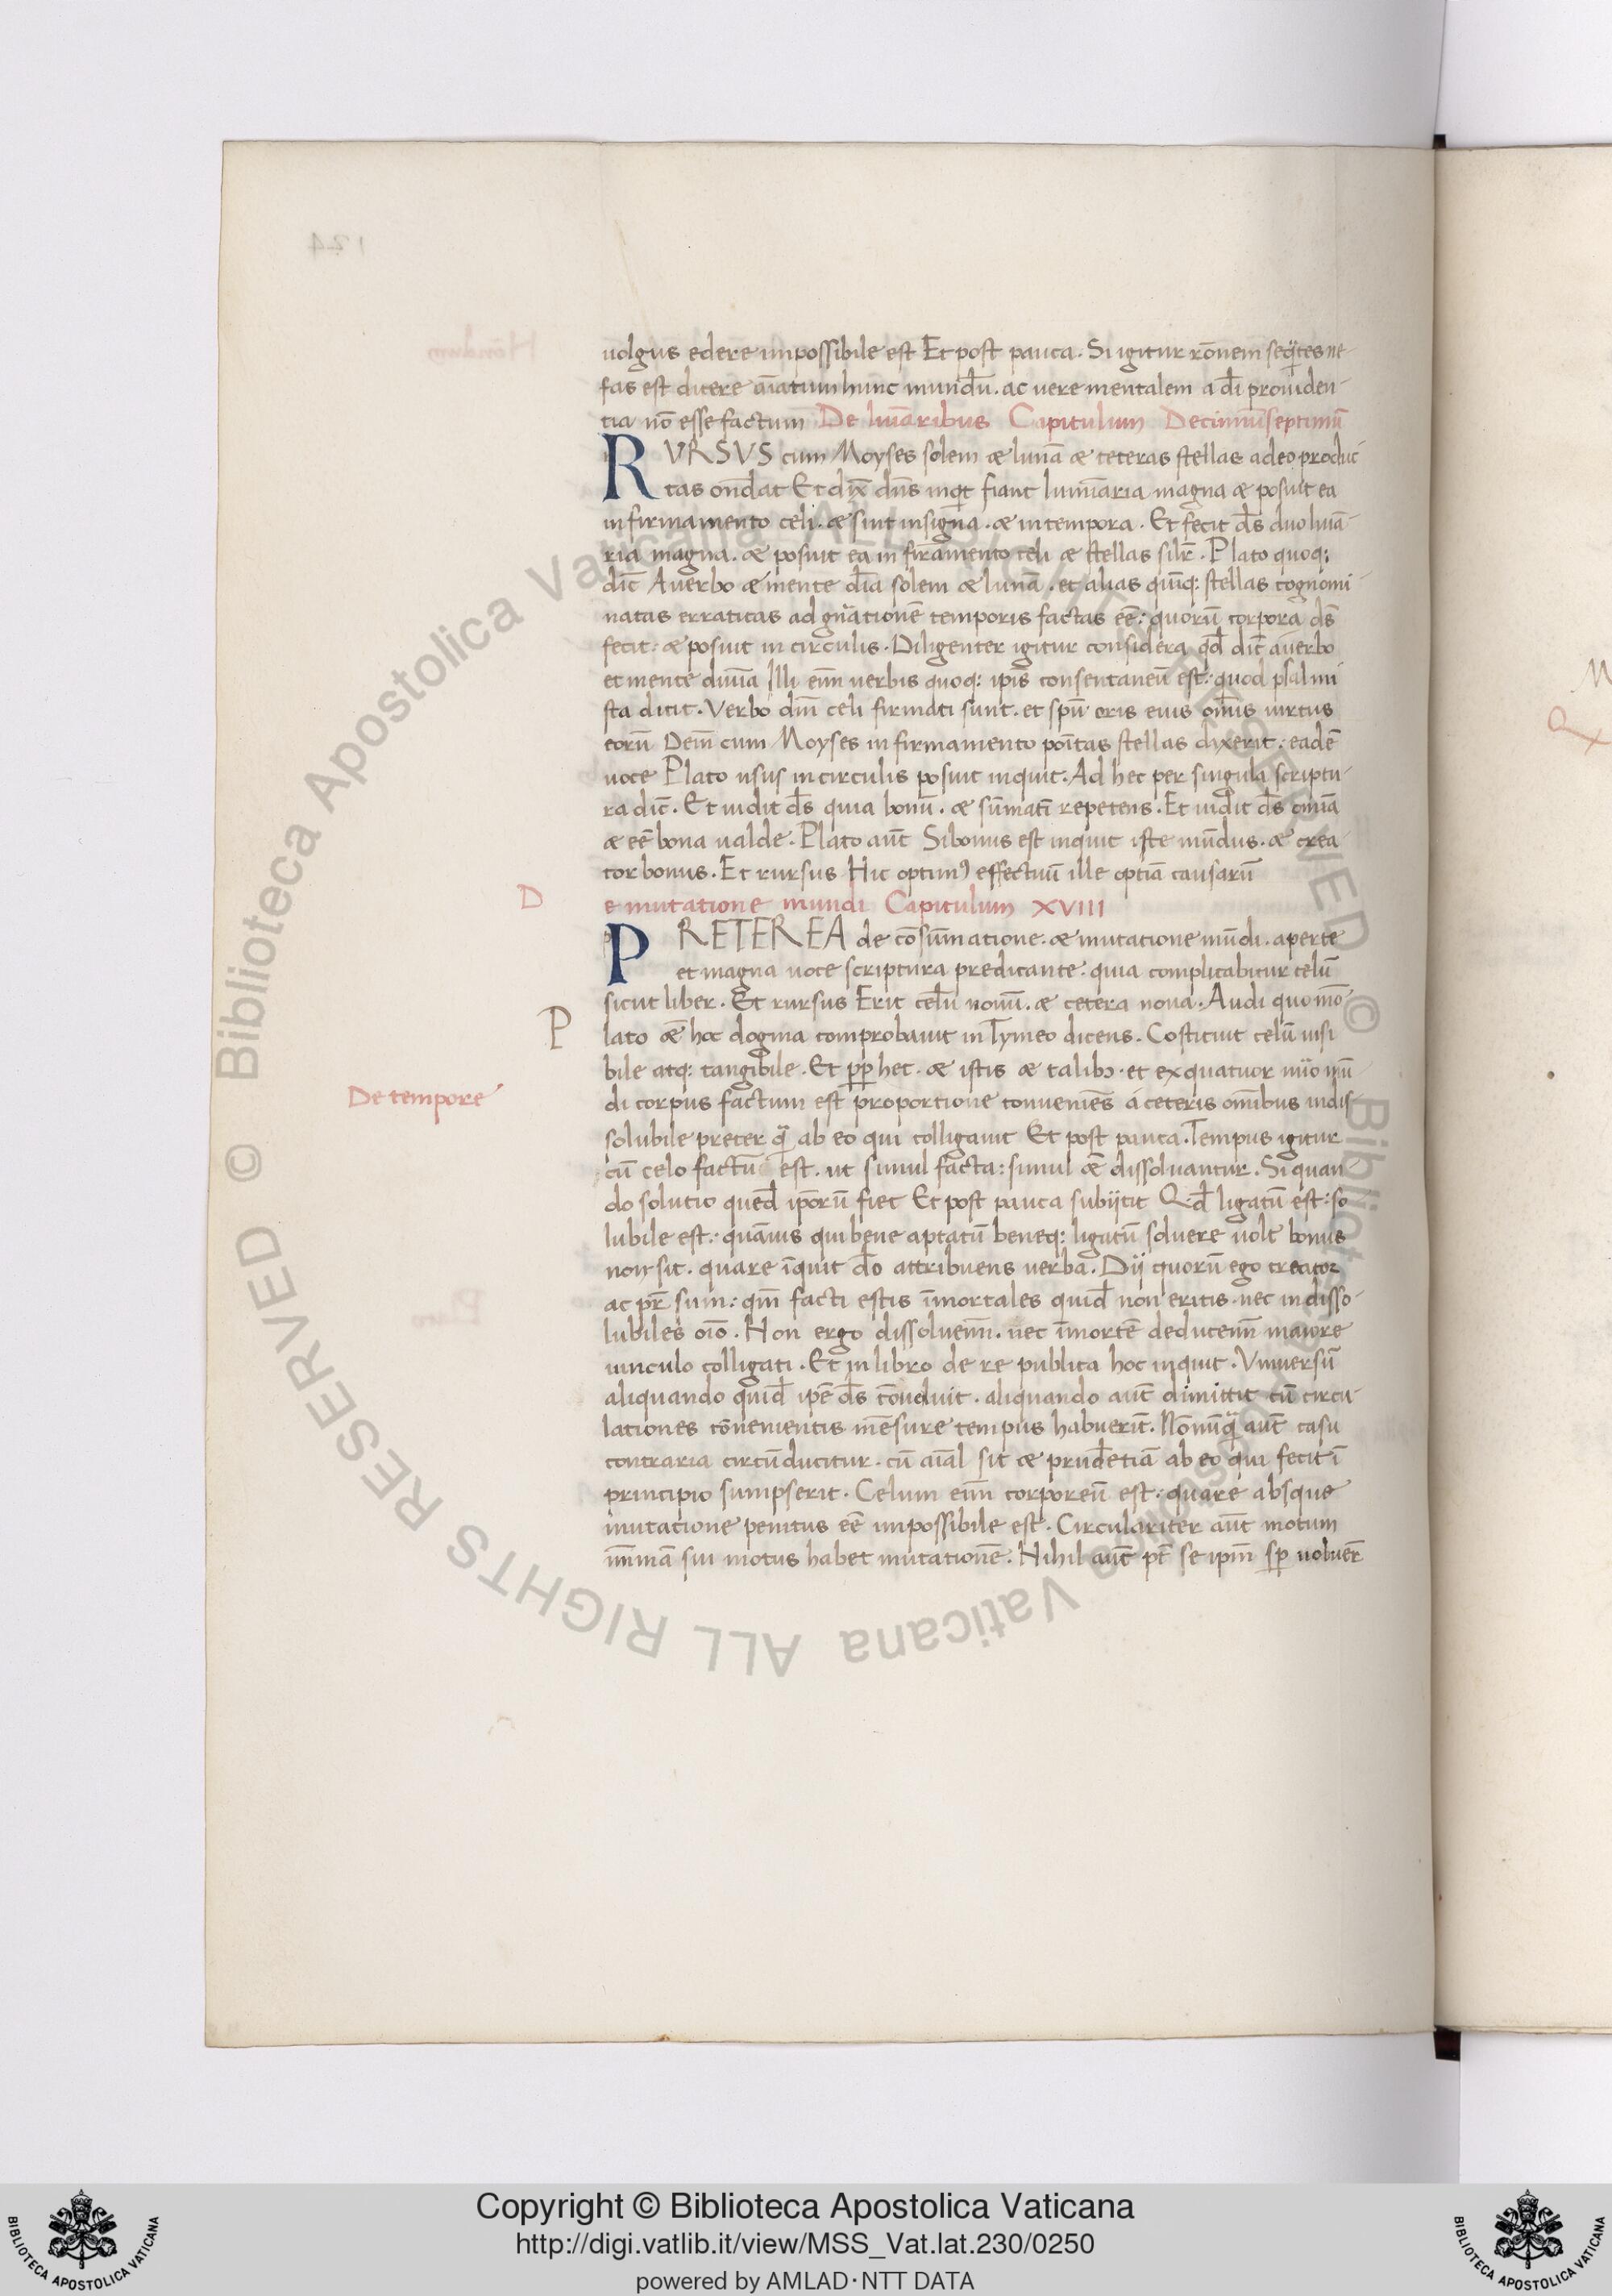 uolgus edere impossibile est Et post pauca. Si igitur rōnem seq̄tes ne-
fas est dicere aīatum hunc mundū. ac uere mentalem a dī prouiden-
tia nō esse factum De luīaribus Capitulum Decimūseptimū
RVRSVS cum Moyses solem æ lunā æ ceteras stellas a deo produc
tas ondat Et dix̄ dn̄s inqt fiant lumīaria magna æ posuit ea
in firmamento celi. æ sint in signa. æ in tempora. Et fecit ds̄ duo luīa-
ria magna. æ posuit ea in firamento celi æ stellas silr̄. Plato quoq;
dic̄ A uerbo æ mente dīa solem æ lunā. et alias quīq; stellas cognomi
natas erraticas ad gnātionē temporis factas eē: quorū corpora ds̄
fecit: æ posuit in circulis. Diligenter igitur considera qd̄ dic̄ a uerbo
et mente diuīa Illi enī uerbis quoq; ipīs consentaneū est: quod psalmi
sta dicit. Verbo dn̄i celi firmati sunt. et spū oris eius omīs uirtus
eorū Deīn cum Moyses in firmamento poītas stellas dixerit: eadē
uoce Plato usus in circulis posuit inquit. Ad hec per singula scriptu-
ra dic̄. Et uidit ds̄ quia bonū. æ sūmatī repetens. Et uidit ds̄ omīa
æ eē bona ualde. Plato aūt Si bonus est inquit iste mūdus. æ crea
tor bonus. Et rursus Hic optimꝰ effectuū ille optīa causarū
D e mutatione mundi Capitulum XVIII
PRETEREA de cōsūmatione. æ mutatione mūdi. aperte
et magna uoce scriptura predicante: quia complicabitur celū
sicut liber. Et rursus Erit celū nouū. æ cetera noua. Audi quomō
P lato ǣ hoc dogma comprobauit in Tymeo dicens. Costituit celū uisi
bile atq; tangibile. Et pp̄ hec. æ istis æ talibꝰ. et ex quatuor nūo mū
De tempore
di corpus factum est proportione conueniēs á ceteris omībus indis-
solubile preter q̄ ab eo qui colligauit Et post pauca. Tempus igitur
cū celo factū est. ut simul facta: simul ǣ dissoluantur. Si quan-
do solutio qued̄ ipōrū fiet Et post pauca subijcit Qd̄ ligatū est: so
lubile est: quāuis qui bene aptatū beneq; ligatū soluere uolt bonus
non sit. quare īquit dō attribuens uerba. Dij quorū ego creator
ac pr̄ sum: qm̄ facti estis īmortales quid̄ non eritis. nec indisso-
lubiles oīo. Non ergo dissoluemī. nec īmortē deducemī maiore
uinculo colligati. Et in libro de re publica hoc inquit. Vniuersū
aliquando quid̄ ipē ds̄ cōuduit. aliquando aūt dimittit cū circu-
lationes cōuenientis mēsure tempus habuerīt. Nōnūq̄ aūt casu
contraria circūducitur. cū aīal sit æ prudētiā ab eo qui fecit ī
principio sumpserit. Celum enī corporeū est: quare absque
mutatione penitus eē impossibile est. Circulariter aūt motum
mīmam sui motus habet mutationē. Nihil aūt pt̄ se ipm̄ sp̄ uoluer̄